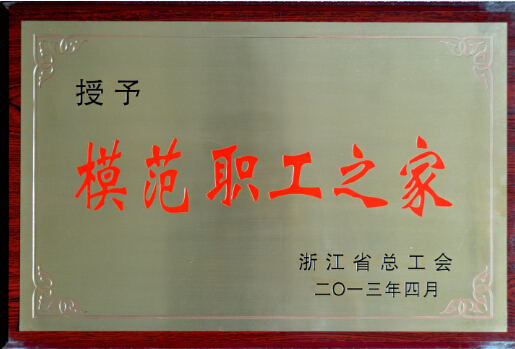 授予
模范职工之家
浙江省总工会
二〇一三年四月